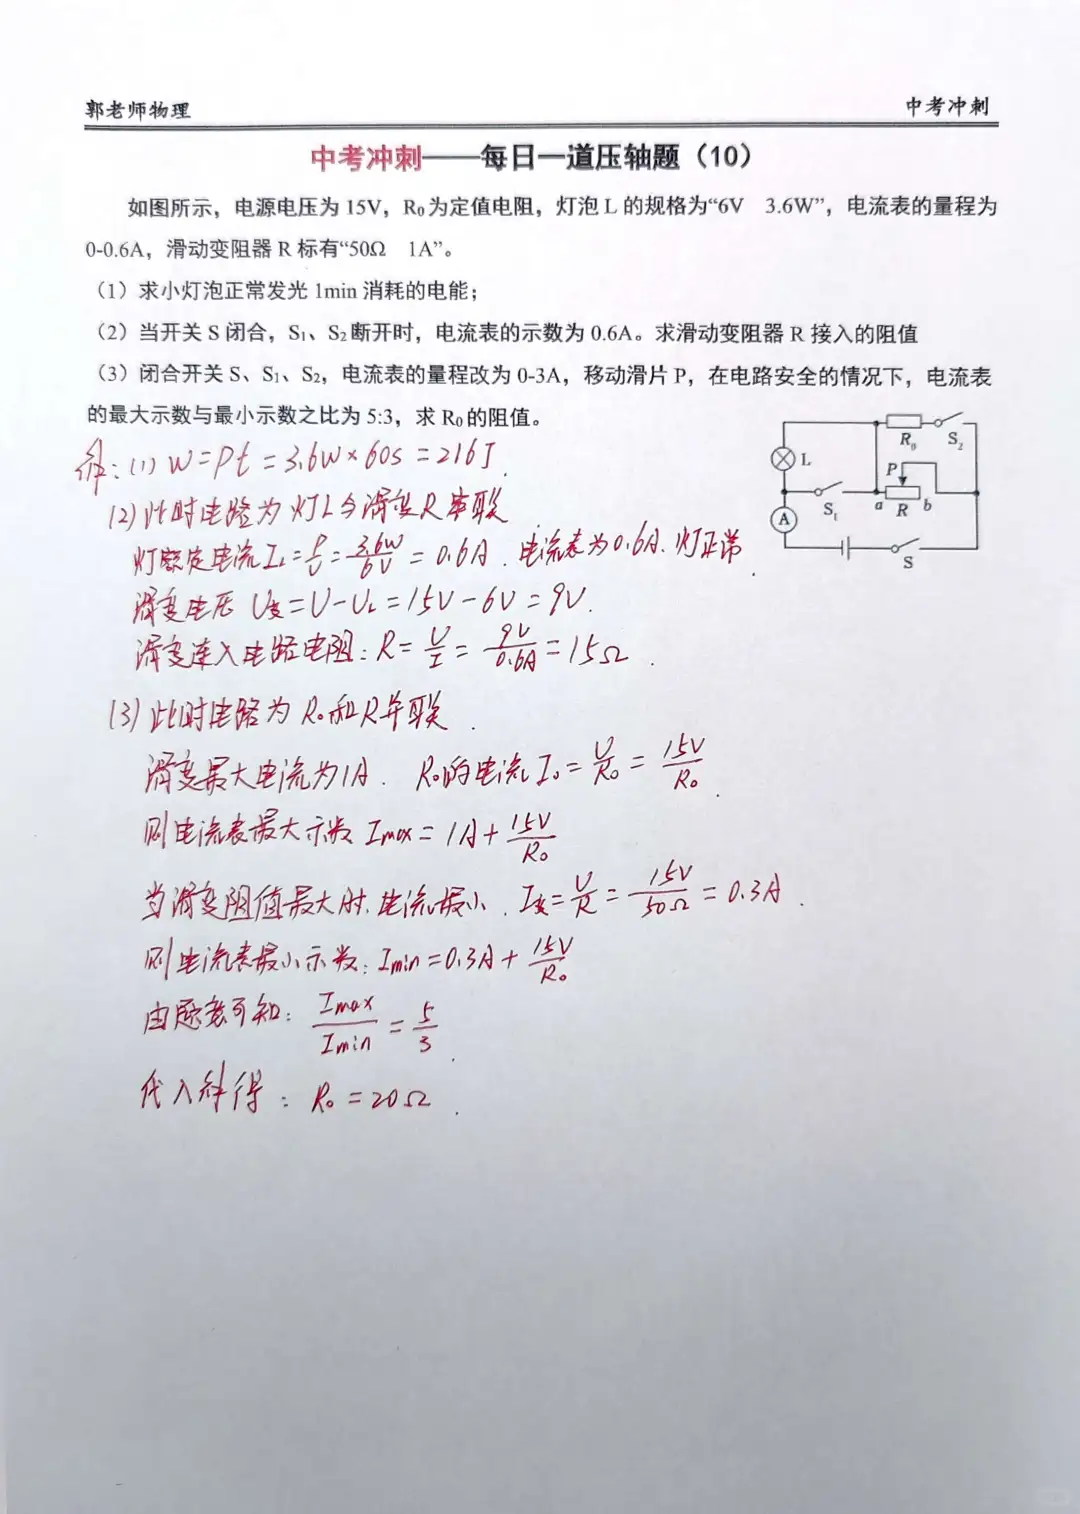 郭老师物理 中考冲刺
中考冲刺——每日一道压轴题（10）
如图所示，电源电压为 15V，R₀为定值电阻，灯泡 L 的规格为“6V 3.6W”，电流表的量程为
0-0.6A，滑动变阻器 R 标有“50Ω 1A”。
（1）求小灯泡正常发光 1min 消耗的电能；
（2）当开关 S 闭合，S₁、S₂断开时，电流表的示数为 0.6A。求滑动变阻器 R 接入的阻值
（3）闭合开关 S、S₁、S₂，电流表的量程改为 0-3A，移动滑片 P，在电路安全的情况下，电流表
的最大示数与最小示数之比为 5:3，求 R₀的阻值。
R₀ S₂
L
P
S₁ a R b
A
S
解：(1) W=Pt=3.6W×60s=216J
(2)此时电路为灯L与滑变R串联
灯额定电流I_L=P/U=3.6W/6V=0.6A．电流表为0.6A．灯正常
滑变电压 U变=U-U_L=15V-6V=9V.
滑变连入电路电阻：R=U/I=9V/0.6A=15Ω．
(3)此时电路为R₀和R并联．
滑变最大电流为1A．R₀的电流I₀=U/R₀=15V/R₀．
则电流表最大示数 Imax=1A+15V/R₀
当滑变阻值最大时，电流最小．I变=U/R=15V/50Ω=0.3A．
则电流表最小示数：Imin=0.3A+15V/R₀
由题意可知：Imax/Imin=5/3．
代入解得：R₀=20Ω．